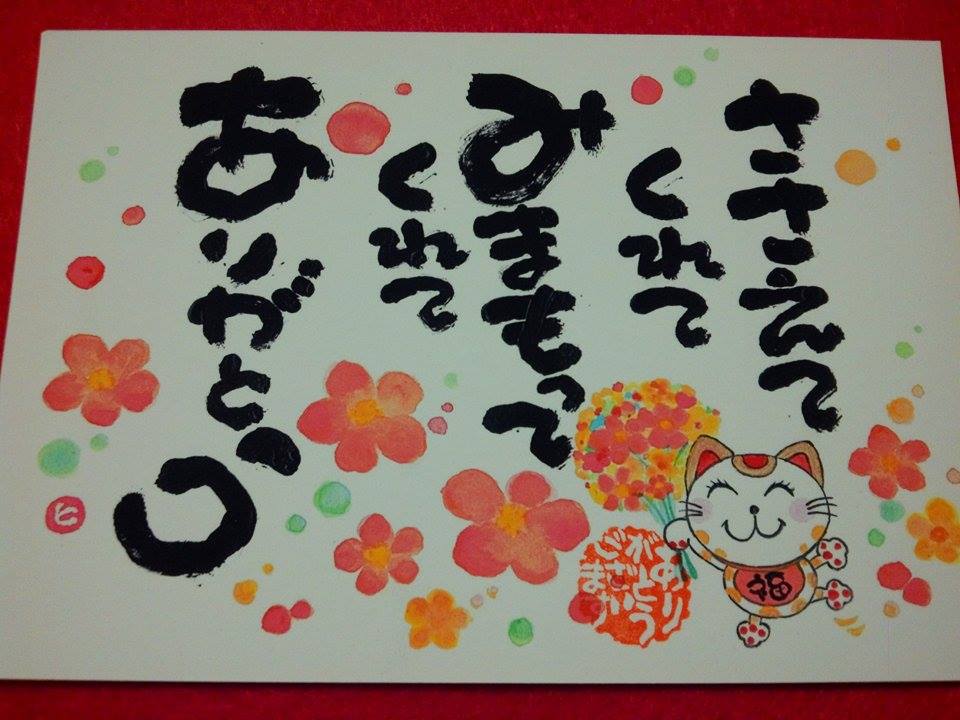 ささえて
くれて
みまもって
くれて
ありがとう
福
ありがとうございます
ヒ